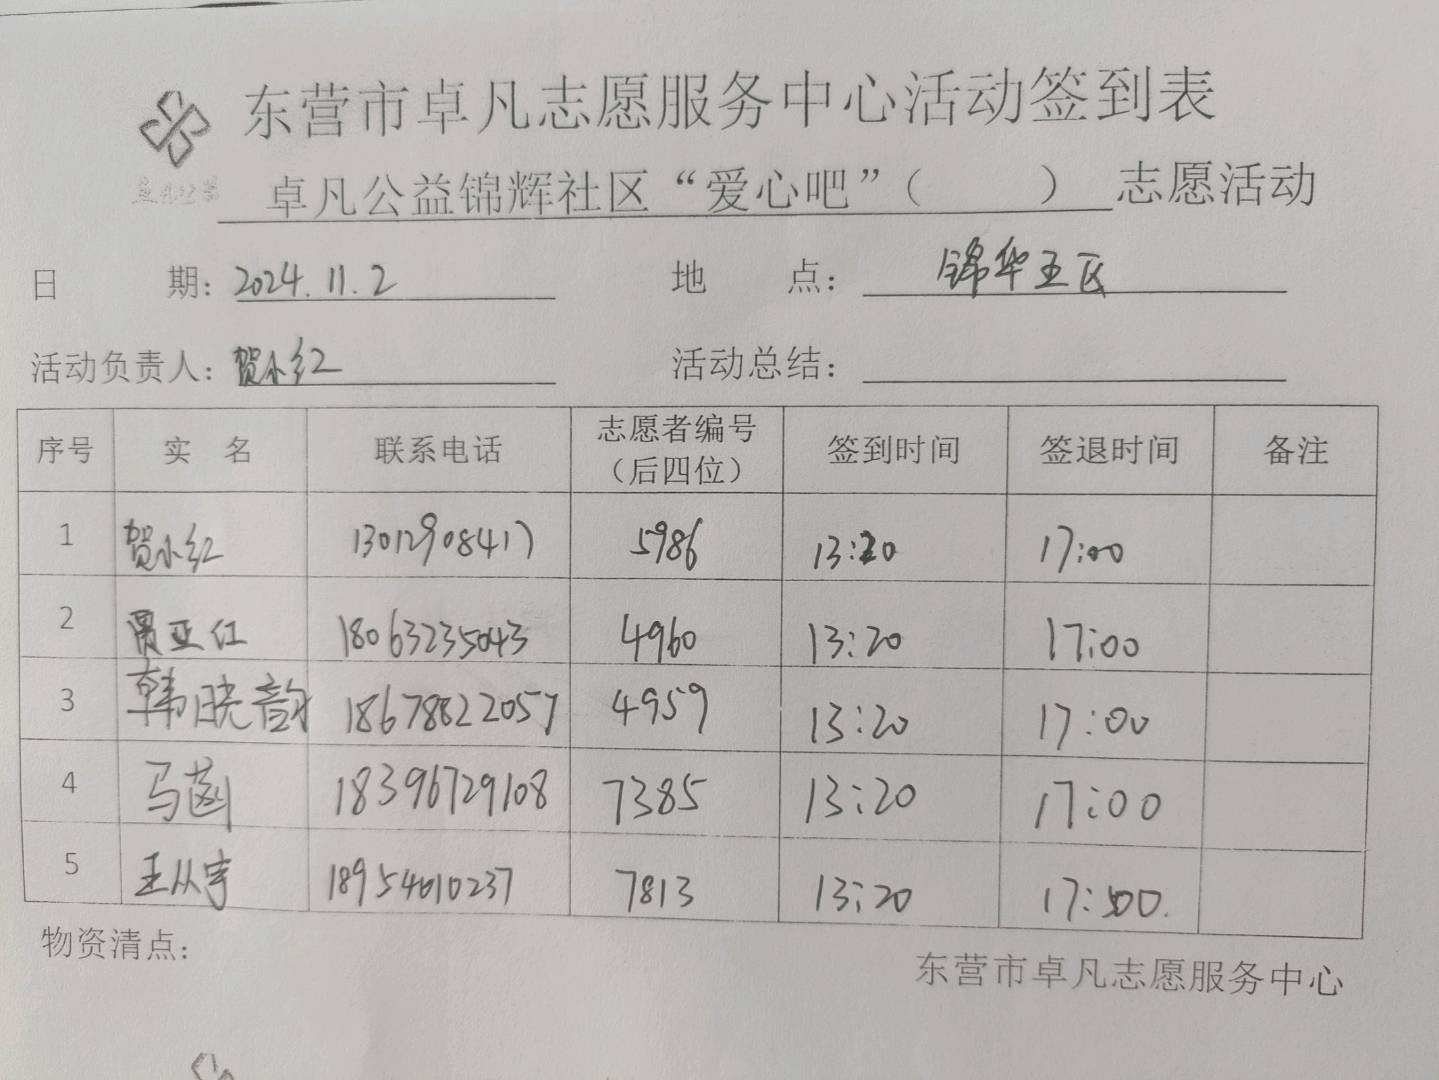 东营市卓凡志愿服务中心活动签到表
卓凡公益
卓凡公益锦辉社区“爱心吧”（ ）志愿活动
日 期：2024.11.2 地 点：锦华五区
活动负责人：贺小红 活动总结：
序号 实 名 联系电话 志愿者编号（后四位） 签到时间 签退时间 备注
1 贺小红 13012908417 5986 13:20 17:00
2 亚红 18063235043 4960 13:20 17:00
3 韩晓韵 18678822057 4959 13:20 17:00
4 马菡 18396729108 7385 13:20 17:00
5 王从宇 18954610237 7813 13:20 17:00
物资清点：
东营市卓凡志愿服务中心